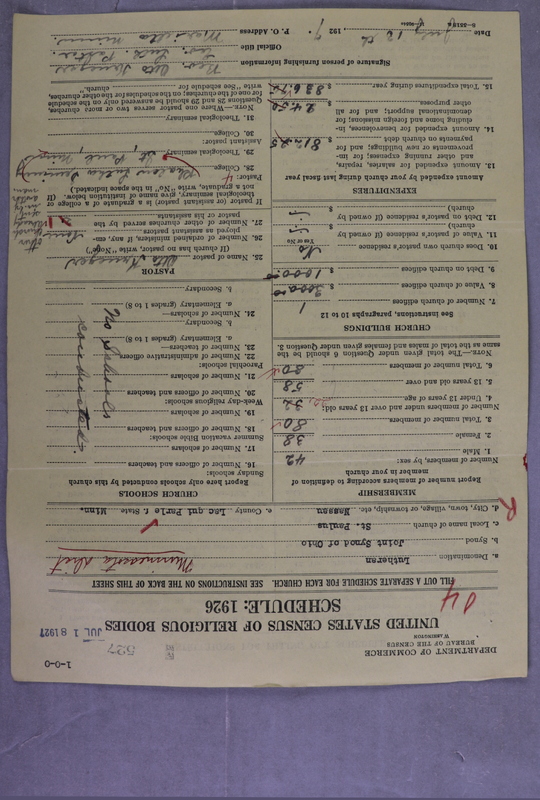 1-0-0
DEPARTMENT OF COMMERCE
BUREAU OF THE CENSUS
WASHINGTON
527
JUL 18 1927
UNITED STATES CENSUS OF RELIGIOUS BODIES
SCHEDULE: 1926
FILL OUT A SEPARATE SCHEDULE FOR EACH CHURCH. SEE INSTRUCTIONS ON THE BACK OF THIS SHEET
a. Denomination Lutheran
Minnesota Dist
b. Synod Joint Synod of Ohio
c. Local name of church St. Paulus
d. City, town, village, or township, etc. Nassau e. County Lac qui Parle f. State Minn.
MEMBERSHIP
Report number of members according to definition of member in your church
Number of members, by sex:
1. Male 42
2. Female 38
3. Total number of members 80
Number of members under and over 13 years old:
4. Under 13 years of age
5. 13 years old and over 58
6. Total number of members 80
NOTE.—The total given under Question 6 should be the same as the total of males and females given under Question 3.
CHURCH BUILDINGS
See instructions, paragraphs 10 to 12
7. Number of church edifices 1
8. Value of church edifices $ 3000.00
9. Debt on church edifices $ 1000.00
10. Does church own pastor's residence No
Yes or No
11. Value of pastor's residence (if owned by church) $
12. Debt on pastor's residence (if owned by church) $
EXPENDITURES
Amount expended by your church during last fiscal year
13. Amount expended for salaries, repairs, and other running expenses; for improvements or new buildings; and for payments on church debt $
14. Amount expended for benevolences, including home and foreign missions; for denominational support; and for all other purposes $ 24.50
15. Total expenditures during year $
CHURCH SCHOOLS
Report here only schools conducted by this church
Sunday schools:
16. Number of officers and teachers
17. Number of scholars
Summer vacation Bible schools:
18. Number of officers and teachers
19. Number of scholars
Week-day religious schools:
20. Number of officers and teachers
21. Number of scholars
Parochial schools:
22. Number of administrative officers
23. Number of teachers—
a. Elementary (grades 1 to 8)
b. Secondary
24. Number of scholars—
a. Elementary (grades 1 to 8)
b. Secondary
No Schools
conducted.
PASTOR
25. Name of pastor Otto
(If church has no pastor, write "No")
26. Number of ordained ministers, if any, employed as assistant pastors
27. Number of other churches served by the pastor or his assistants
If pastor (or assistant pastor) is a graduate of a college or theological seminary, give name of institution below. (If not a graduate, write "No" in the space indicated).
Pastor
28. College
29. Theological seminary St. Paul, Minn.
Assistant pastor:
30. College
31. Theological seminary
NOTE.—Where one pastor serves two or more churches, Questions 28 and 29 should be answered only on the schedule for one of the churches; on the schedules for the other churches, write "See schedule for church."
Signature of person furnishing information Rev. Otto
Official title Ev. Luth. Pastor.
P. O. Address Marietta Minn
Date July 12 th 1927
8—5515